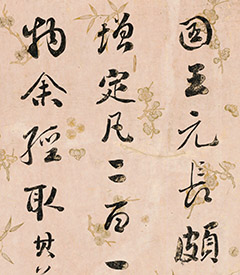 國王元長頗
增定凡二百一
物余經取其